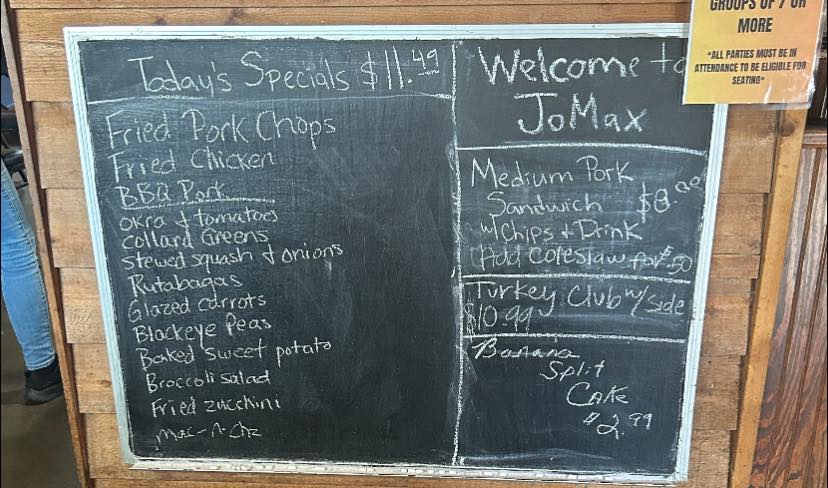 Today's Specials $11.49
Fried Pork Chops
Fried Chicken
BBQ Pork
okra & tomatoes
Collard Greens
stewed squash & onions
Rutabagas
Glazed carrots
Blackeye Peas
Baked sweet potato
Broccoli salad
Fried zucchini
Mac-N-Chz
Welcome to
JoMax
Medium Pork
Sandwich $8.00
w/Chips & Drink
Add coleslaw for $.50
Turkey Club w/ side
$10.99
Banana
Split
Cake
$2.99
GROUPS OF 7 OR
MORE
*ALL PARTIES MUST BE IN
ATTENDANCE TO BE ELIGIBLE FOR
SEATING*